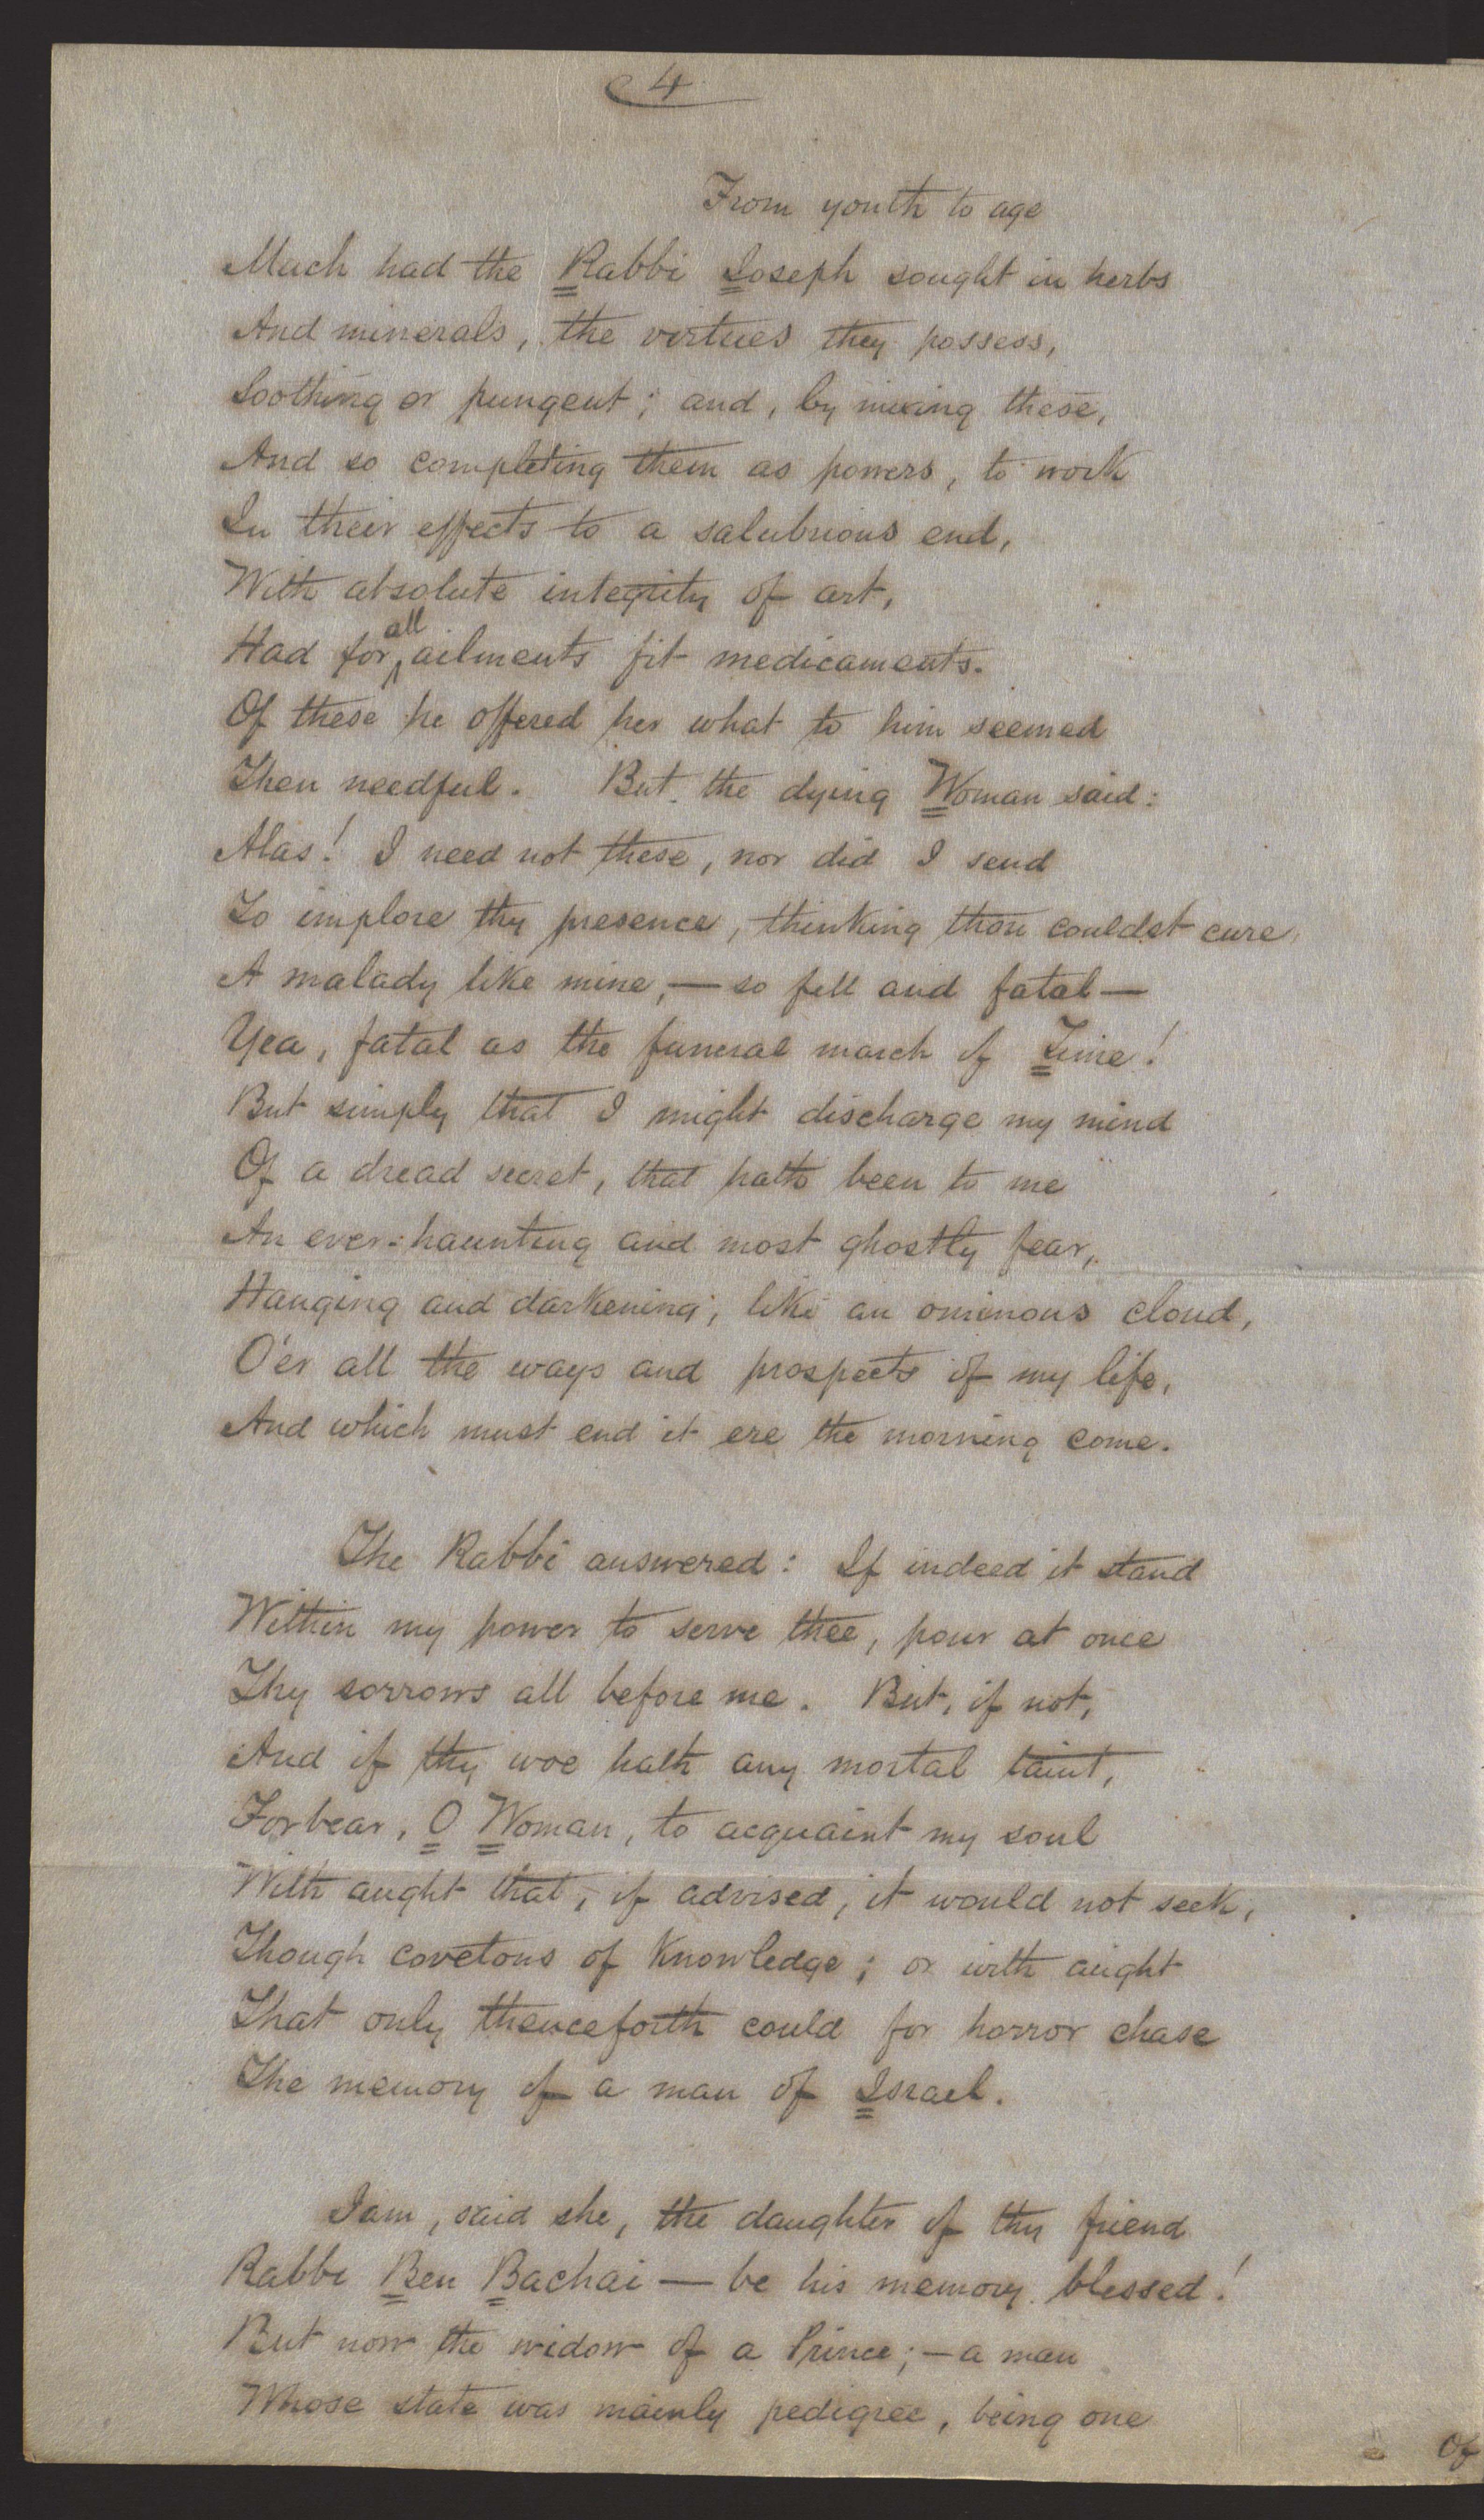 4
From youth to age
Much had the Rabbi Joseph sought in herbs
And minerals, the virtues they possess,
Soothing or pungent; and, by mixing these,
And so completing them as powers, to work
In their effects to a salubrious end,
With absolute integrity of art,
all
Had for ailments fit medicaments.
Of these he offered her what to him seemed
Then needful. But the dying Woman said:
Alas! I need not these, nor did I send
To implore thy presence, thinking thou couldst cure
A malady like mine,—so fell and fatal—
Yea, fatal as the funeral march of Time!
But simply that I might discharge my mind
Of a dread secret, that hath been to me
An ever-haunting and most ghostly fear,
Hanging and darkening, like an ominous cloud,
O'er all the ways and prospects of my life,
And which must end it ere the morning come.
The Rabbi answered: If indeed it stand
Within my power to serve thee, pour at once
Thy sorrows all before me. But, if not,
And if thy woe hath any mortal taint,
Forbear, O Woman, to acquaint my soul
With aught that, if advised, it would not seek,
Though covetous of Knowledge; or with aught
That only thenceforth could for horror chase
The memory of a man of Israel.
I am, said she, the daughter of thy friend
Rabbi Ben Bachai — be his memory blessed!
But now the widow of a Prince;—a man
Whose state was mainly pedigree, being one
Of